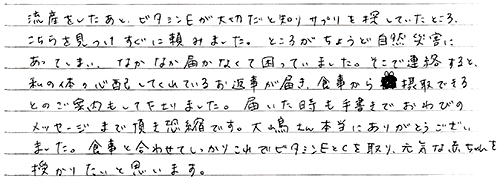 流産をしたあと、ビタミンEが大切だと知りサプリを探していたところ、
こちらを見つけすぐに頼みました。ところがちょうど自然災害に
あってしまい、なかなか届かなくて困っていました。そこで連絡すると、
私の体の心配してくれているお返事が届き、食事から摂取できる
とのご案内もして下さりました。届いた時も手書きでおわびの
メッセージまで頂き恐縮です。大山鳥さん本当にありがとうござい
ました。食事と合わせてしっかりこれでビタミンEとCを取り、元気な赤ちゃんを
授かりたいと思います。